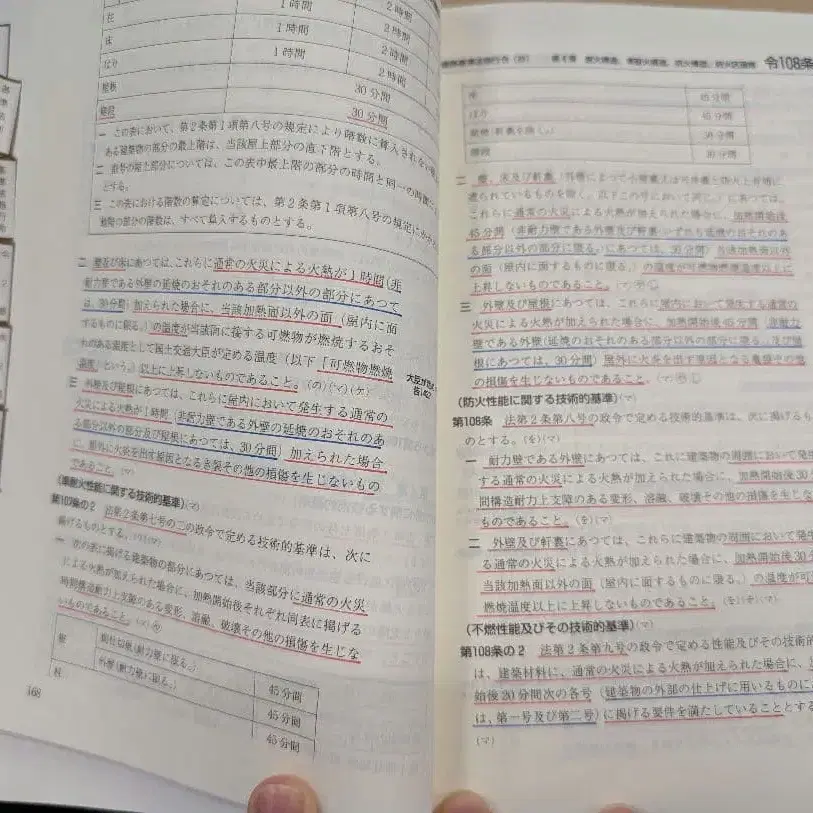 柱
1時間
2時間
床
1時間
2時間
はり
1時間
2時間
屋根
30分間
階段
30分間
一 この表において、第2条第1項第八号の規定により階数に算入されない
ある建築物の部分の最上階は、当該屋上部分の直下階とする。
二 前号の屋上部分については、この表中最上階の部分の時間と同一の時間
とする。
三 この表における階数の算定については、第2条第1項第八号の規定にかかわ
地階の部分の階数は、すべて算入するものとする。
二 壁及び床にあつては、これらに通常の火災による火熱が1時間(非
耐力壁である外壁の延焼のおそれのある部分以外の部分にあつて
は、30分間)加えられた場合に、当該加熱面以外の面(屋内に面
するものに限る。)の温度が当該面に接する可燃物が燃焼するおそ
れのある温度として国土交通大臣が定める温度(以下「可燃物燃焼
温度」という。)以上に上昇しないものであること。(の)(マ)(ケ)
三 外壁及び屋根にあつては、これらに屋内において発生する通常の
火災による火熱が1時間(非耐力壁である外壁の延焼のおそれのあ
る部分以外の部分及び屋根にあつては、30分間)加えられた場合
に、屋外に火炎を出す原因となるき裂その他の損傷を生じないもの
であること。(マ)
(準耐火性能に関する技術的基準)(マ)
第107条の2 法第2条第七号の二の政令で定める技術的基準は、次に
掲げるものとする。
一 次の表に掲げる建築物の部分にあつては、当該部分に通常の火災
による火熱が加えられた場合に、加熱開始後それぞれ同表に掲げる
時間構造耐力上支障のある変形、溶融、破壊その他の損傷を生じな
いものであること。
壁
間仕切壁(耐力壁に限る。)
45分間
外壁(耐力壁に限る。)
45分間
柱
45分間
168
第4章 耐火構造、準耐火構造、防火構造、防火区画等 令108条
床
45分間
はり
45分間
屋根(軒裏を除く。)
30分間
階段
30分間
二 壁、床及び軒裏(外壁によつて小屋裏又は天井裏と防火上有効に
遮られているものを除く。以下この号において同じ。)にあつては、
これらに通常の火災による火熱が加えられた場合に、加熱開始後
45分間(非耐力壁である外壁及び軒裏(いずれも延焼のおそれのあ
る部分以外の部分に限る。)にあつては、30分間)当該加熱面以外
の面(屋内に面するものに限る。)の温度が可燃物燃焼温度以上に
上昇しないものであること。
三 外壁及び屋根にあつては、これらに屋内において発生する通常の
火災による火熱が加えられた場合に、加熱開始後45分間(非耐力
壁である外壁(延焼のおそれのある部分以外の部分に限る。)及び屋
根にあつては、30分間)屋外に火炎を出す原因となる亀裂その他
の損傷を生じないものであること。
(防火性能に関する技術的基準)(マ)
第108条 法第2条第八号の政令で定める技術的基準は、次に掲げるも
のとする。(を)(マ)
一 耐力壁である外壁にあつては、これに建築物の周囲において発生
する通常の火災による火熱が加えられた場合に、加熱開始後30分
間構造耐力上支障のある変形、溶融、破壊その他の損傷を生じな
ものであること。(を)(マ)
二 外壁及び軒裏にあつては、これらに建築物の周囲において発生
る通常の火災による火熱が加えられた場合に、加熱開始後30分
当該加熱面以外の面(屋内に面するものに限る。)の温度が可
燃焼温度以上に上昇しないものであること。
(不燃性能及びその技術的基準)(マ)
第108条の2 法第2条第九号の政令で定める性能及びその技術的
は、建築材料に、通常の火災による火熱が加えられた場合に、
始後20分間次の各号(建築物の外部の仕上げに用いるものに
は、第一号及び第二号)に掲げる要件を満たしていることとす
(マ)